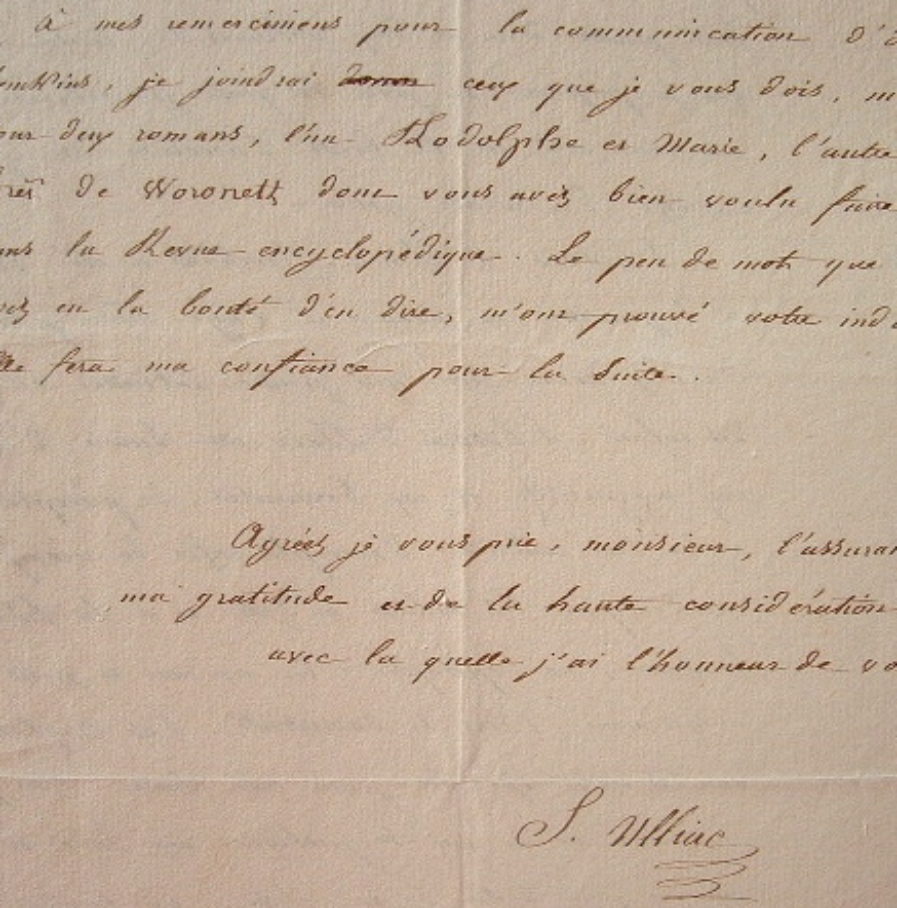 à mes remerciemens pour la communication d'
, je joindrai ceux que je vous dois,
deux romans, l'un Rodolphe et Marie, l'autre
de Woronetz dont vous avez bien voulu faire
la Revue encyclopédique. Le peu de mots que
eu la bonté d'en dire, m'ont prouvé votre
fera ma confiance pour la suite.
Agréez je vous prie, monsieur,
ma gratitude et de la haute considération
avec la quelle j'ai l'honneur de
S. Ulliac